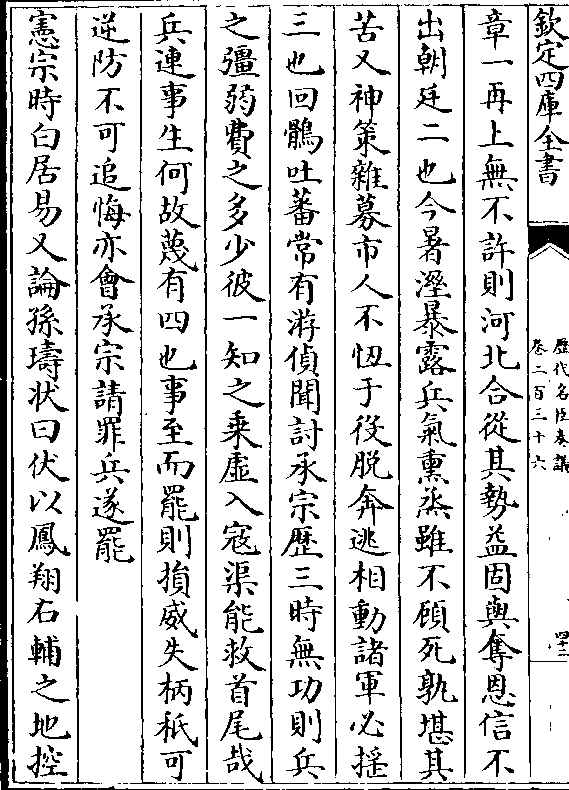 欽定四庫全書
歷代名臣奏議
卷二百三十六
四十二
章一再上無不許則河北合從其勢益固與奪恩信不
出朝廷二也今暑溼暴露兵氣熏蒸雖不顧死孰堪其
苦又神策雜募市人不忸于役脫奔逃相動諸軍必搖
三也回鶻吐蕃常有游偵聞討承宗歷三時無功則兵
之彊弱費之多少彼一知之乗虛入寇渠能救首尾哉
兵連事生何故蔑有四也事至而罷則損威失柄秖可
逆防不可追悔亦會承宗請罪兵遂罷
憲宗時白居易又論孫璹状曰伏以鳳翔右輔之地控